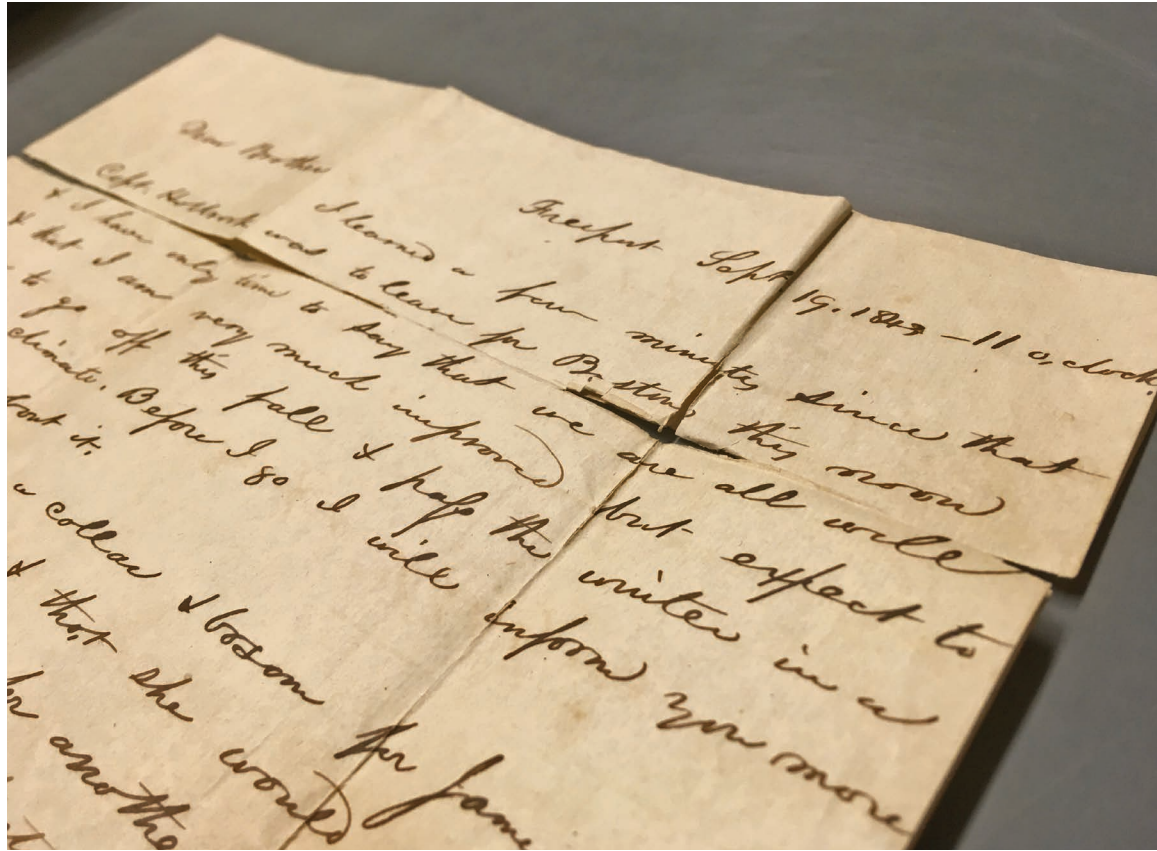 Freeport Sept 19. 1843 - 11 o,clock
Dear Brother
I learned a few minutes since that
Capt. was to leave for Boston this noon
& I have only time to say that we are all well
& that I am very much improved but expect to
to go off this fall & pass the winter in a
climate. Before I go I will inform you more
bout it.
a collar & bosom for Jame
& that she would
for anothe